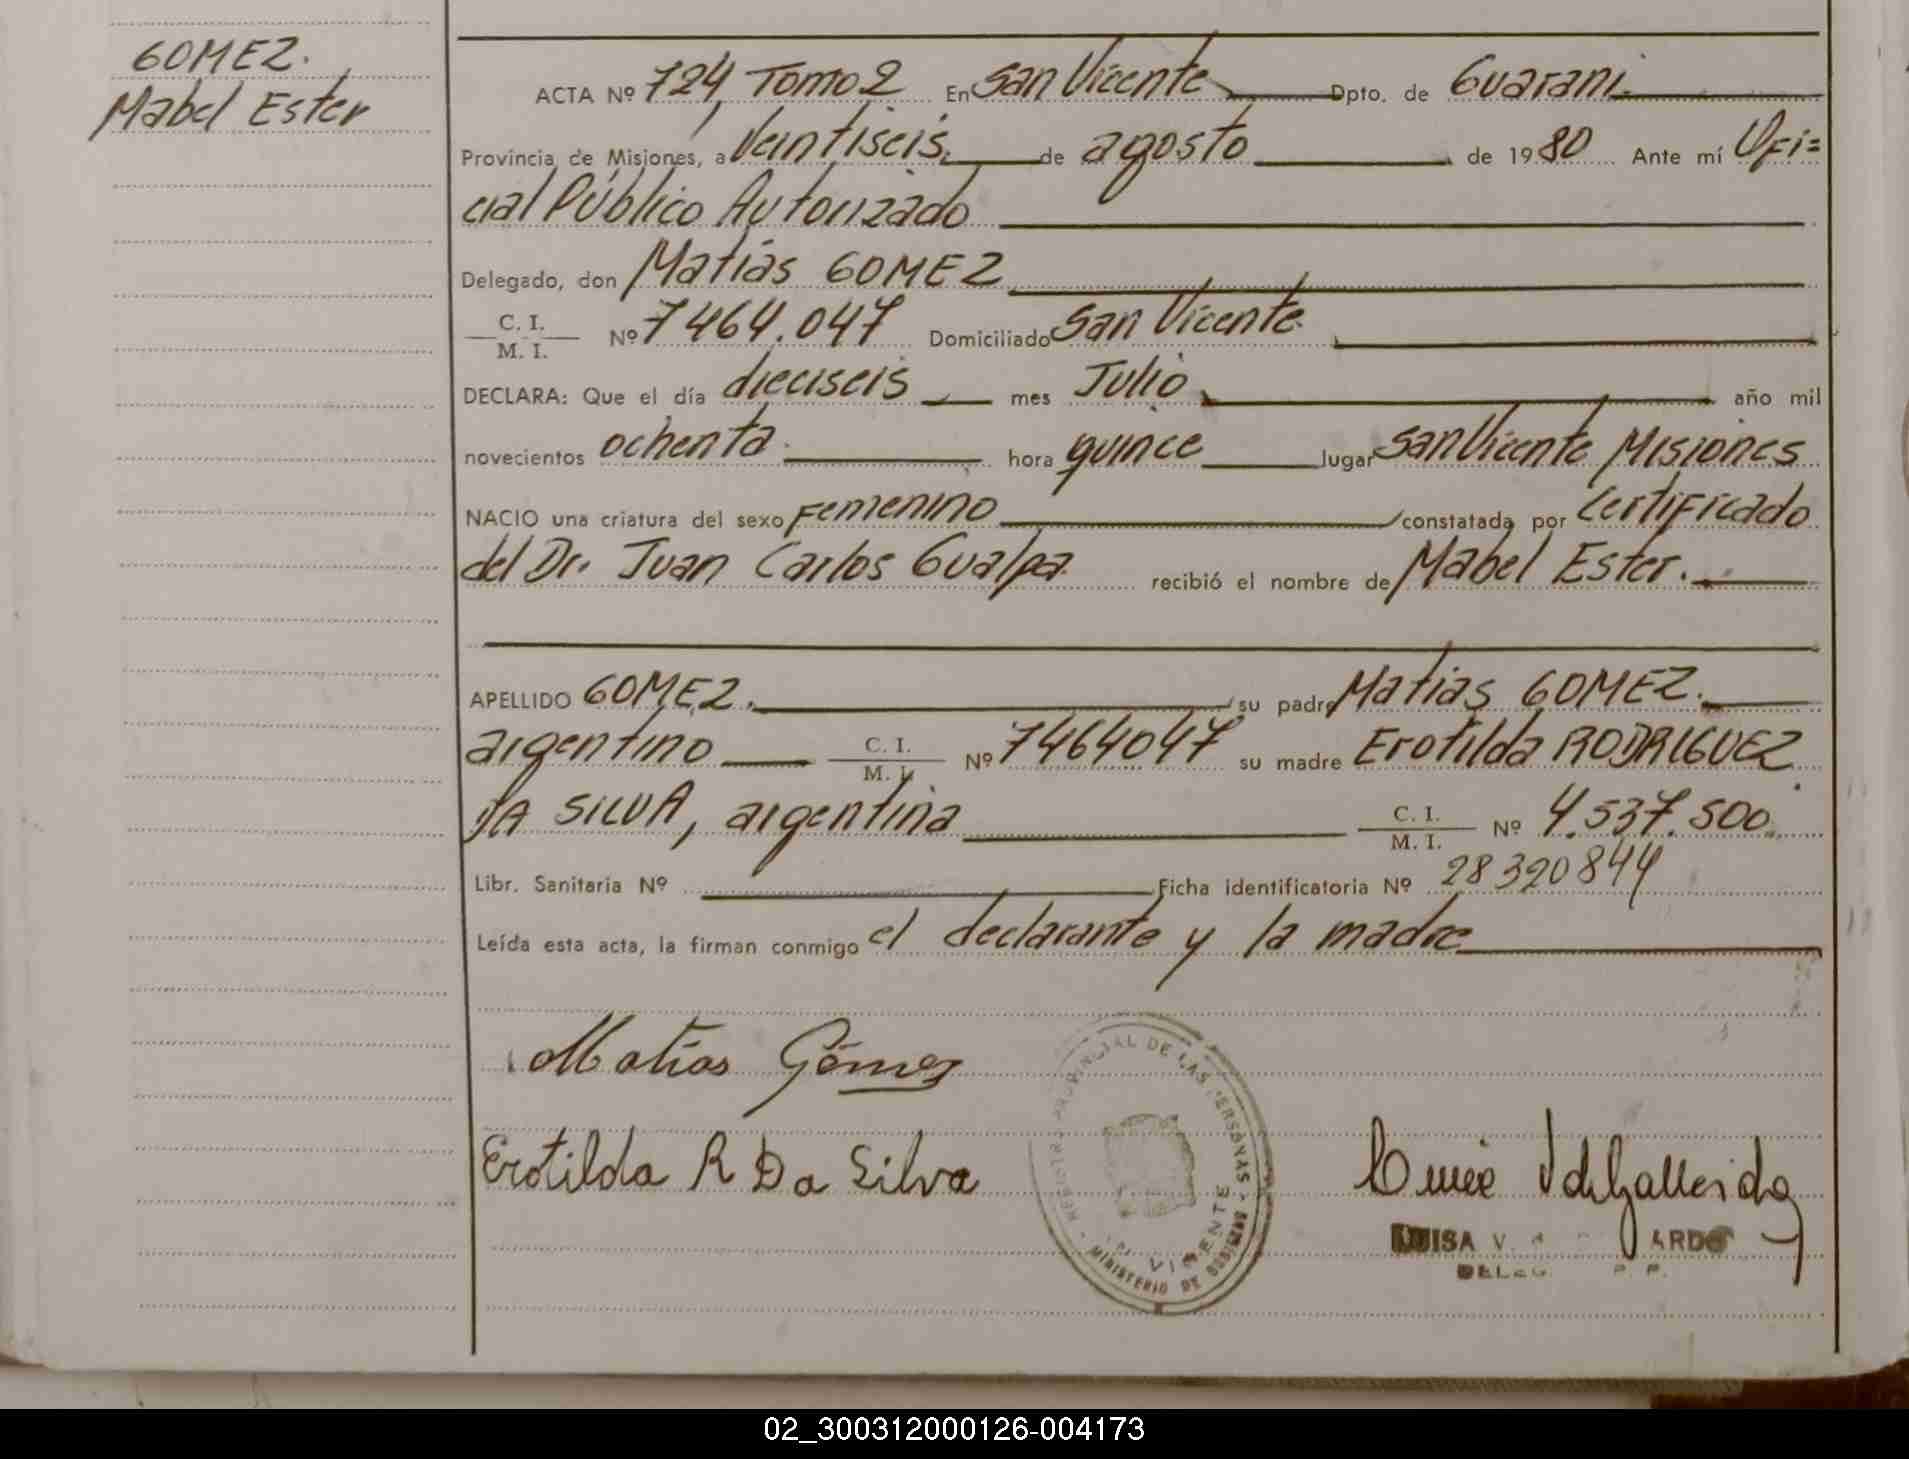 GOMEZ.
Mabel Ester
ACTA Nº 724, Tomo 2 En San Vicente Dpto. de Guaraní.
Provincia de Misiones, a Veintiseis de agosto de 1980 Ante mí Ofi=
cial Público Autorizado
Delegado, don Matías GOMEZ
C. I.
M. I.
Nº 7464.047 Domiciliado San Vicente.
DECLARA: Que el día dieciseis mes Julio año mil
novecientos ochenta hora quince lugar San Vicente Misiones
NACIO una criatura del sexo Femenino constatada por Certificado
del Dr. Juan Carlos Gualpa recibió el nombre de Mabel Ester.
APELLIDO GOMEZ. su padre Matias GOMEZ.
argentino C. I.
M. I.
Nº 7464047 su madre Erotilda RODRIGUEZ
DA SILVA, argentina C. I.
M. I.
Nº 4.537.500.
Libr. Sanitaria Nº Ficha identificatoria Nº 28320844
Leída esta acta, la firman conmigo el declarante y la madre
Matías Gómez
Erotilda R Da Silva
REGISTRO PROVINCIAL DE LAS PERSONAS
VICENTE
MINISTERIO DE
LUISA V.
02_300312000126-004173